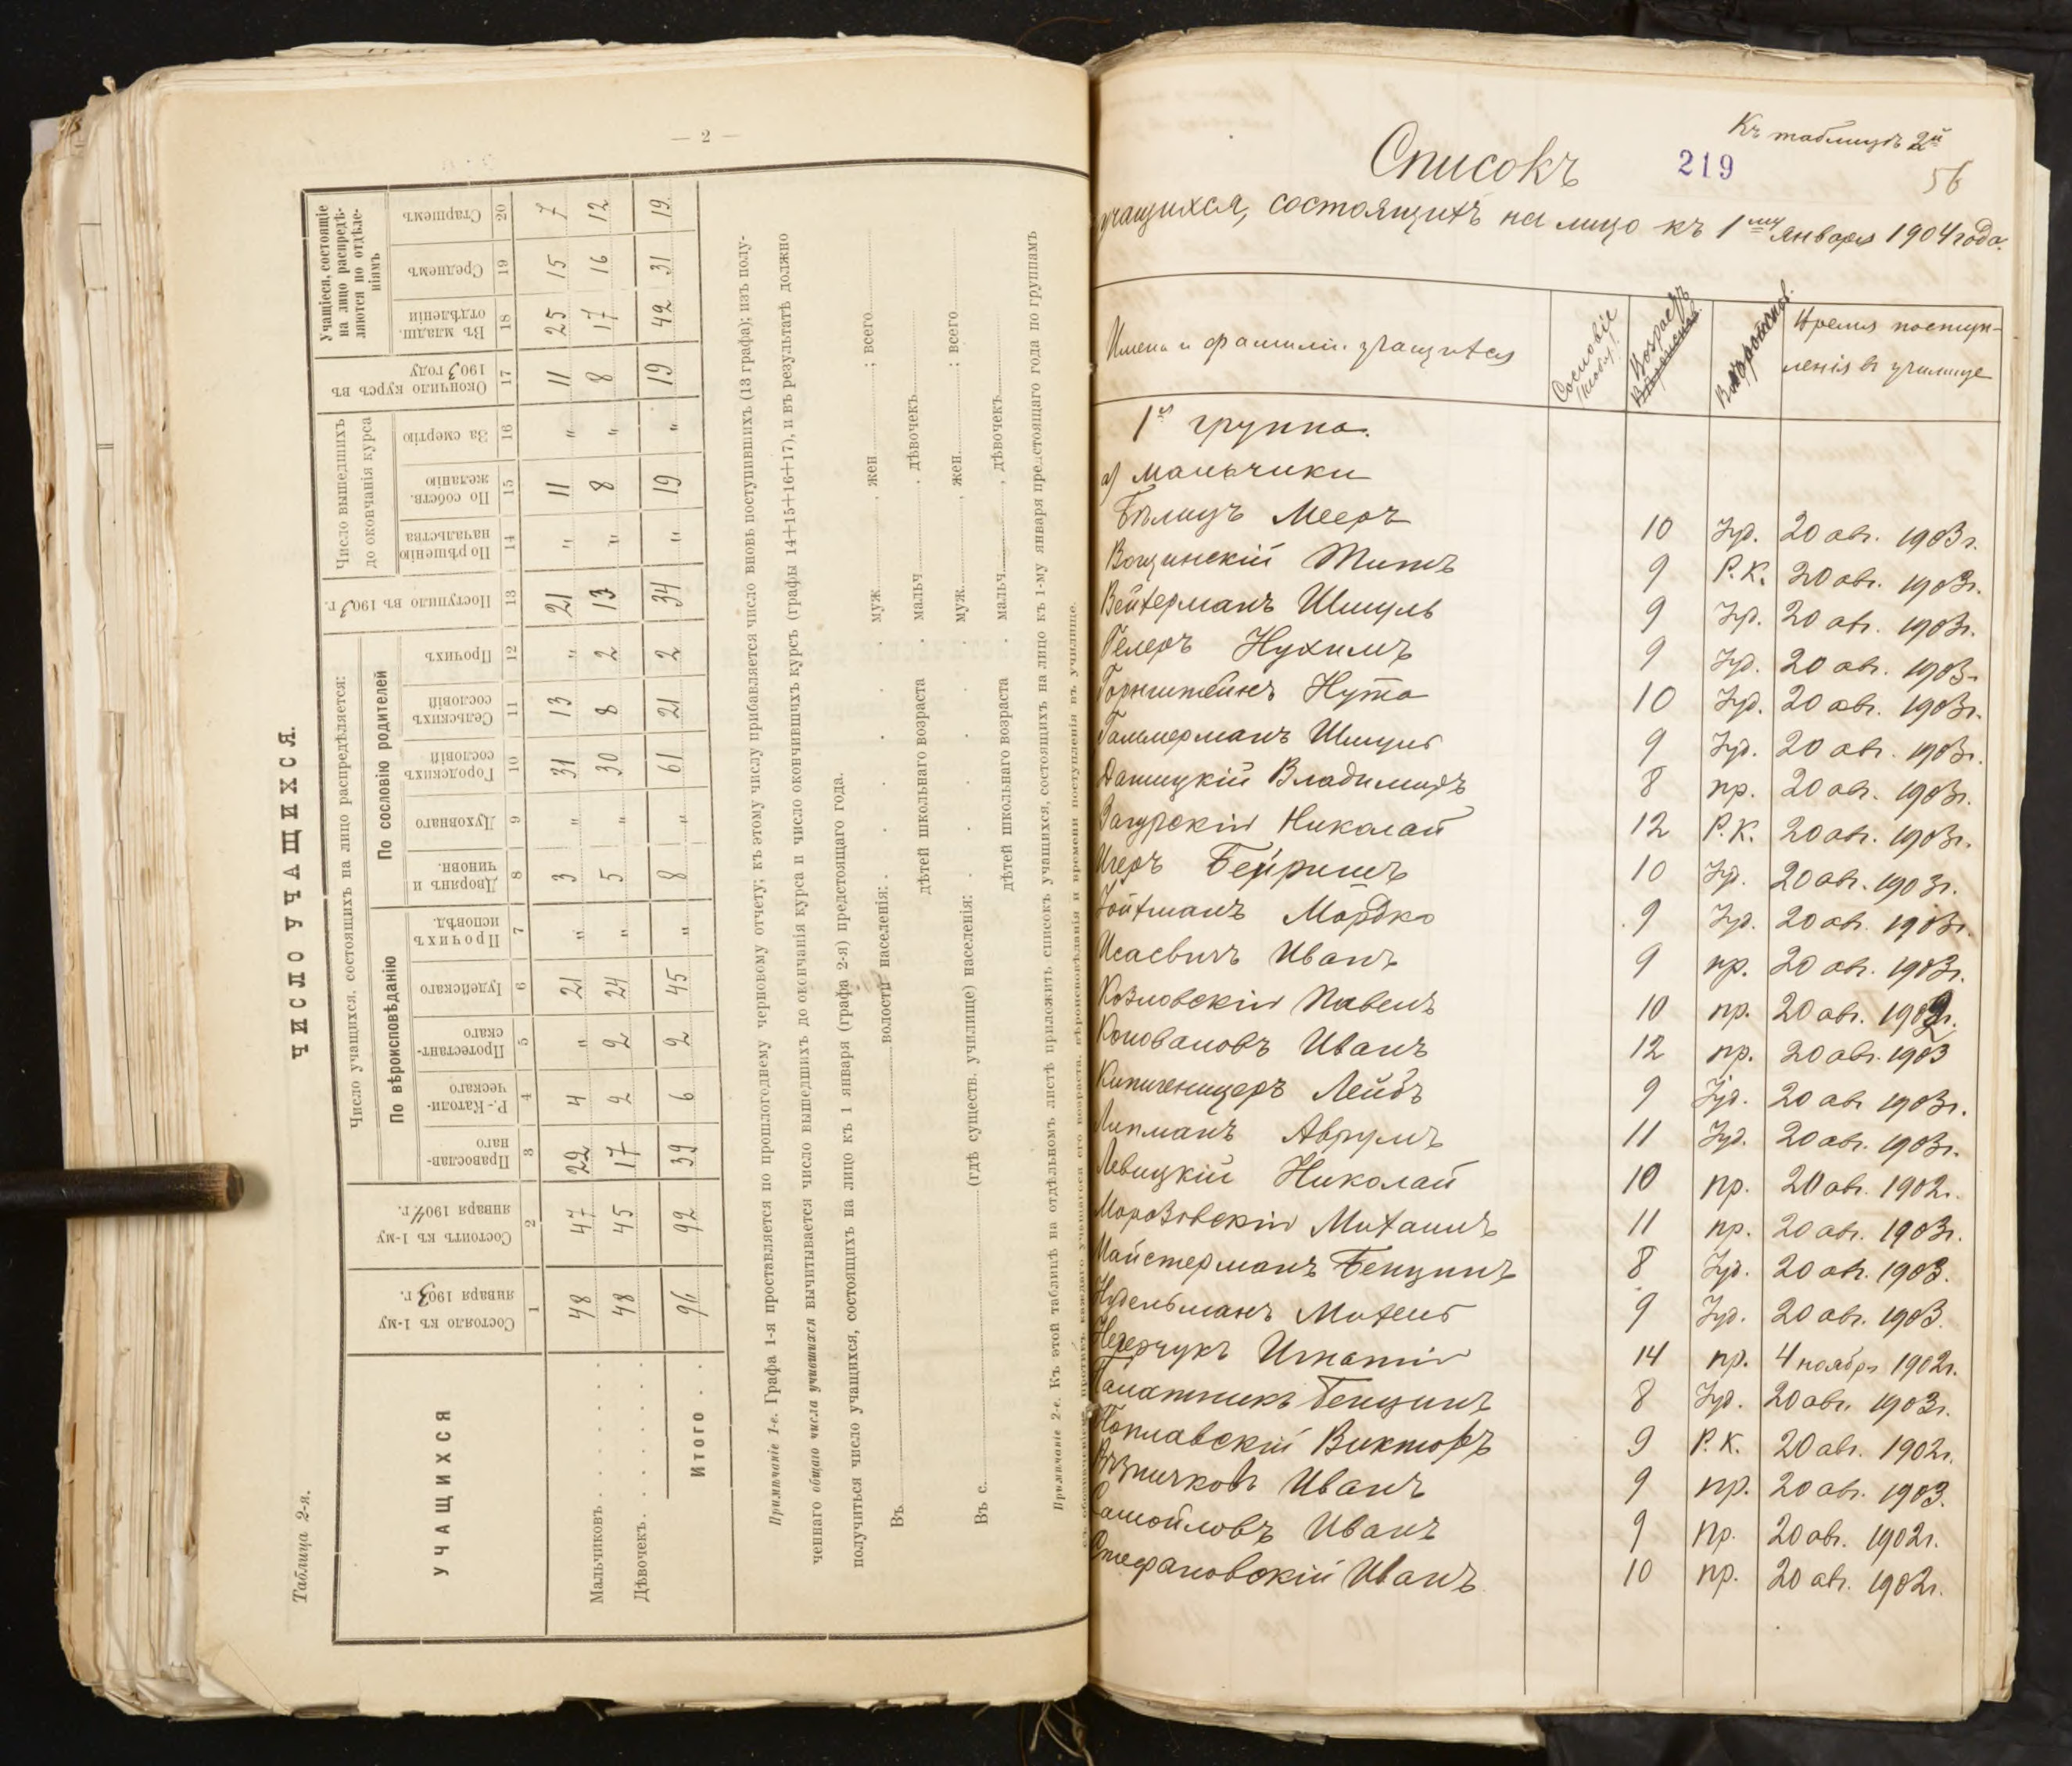 — 2 —
Таблица 2-я.
ЧИСЛО УЧАЩИХСЯ.
УЧАЩИХСЯ
Состояло къ 1-му января 1903 г.
Состоитъ къ 1-му января 1904 г.
Число учащихся, состоящихъ на лицо распредѣляется:
По вѣроисповѣданію
По сословію родителей
Православнаго
Р.-Католическаго
Протестантскаго
Іудейскаго
Прочихъ исповѣд.
Дворянъ и чиновн.
Духовнаго
Городскихъ сословій
Сельскихъ сословій
Прочихъ
Поступило въ 1903 г.
Число вышедшихъ до окончанія курса
По рѣшенію начальства
По собств. желанію
За смертію
Окончило курсъ въ 1903 году
Учащіеся, состоящіе на лицо распредѣляются по отдѣленіямъ
Въ младш. отдѣленіи
Среднемъ
Старшемъ
1 2 3 4 5 6 7 8 9 10 11 12 13 14 15 16 17 18 19 20
Мальчиковъ . 48 47 22 4 " 21 " 3 " 31 13 " 21 " 11 " 11 25 15 7
Дѣвочекъ . 48 45 17 2 2 24 " 5 " 30 8 2 13 " 8 " 8 17 16 12
Итого . . 96 92 39 6 2 45 " 8 " 61 21 2 34 " 19 " 19 42 31 19
Примѣчаніе 1-е. Графа 1-я проставляется по прошлогоднему черновому отчету; къ этому числу прибавляется число вновь поступившихъ (13 графа); изъ полу-
ченнаго общаго числа учившихся вычитывается число вышедшихъ до окончанія курса и число окончившихъ курсъ (графы 14+15+16+17), и въ результатѣ должно
получиться число учащихся, состоящихъ на лицо къ 1 января (графа 2-я) предстоящаго года.
Въ волости населенія: муж. , жен ; всего
дѣтей школьнаго возраста . мальч , дѣвочекъ
Въ с. (гдѣ существ. училище) населенія: муж. , жен. ; всего
дѣтей школьнаго возраста . мальч. , дѣвочекъ
Примѣчаніе 2-е. Къ этой таблицѣ на отдѣльномъ листѣ приложить списокъ учащихся, состоящихъ на лицо къ 1-му января предстоящаго года по группамъ
съ обозначеніемъ противъ каждаго учащагося его возраста, вѣроисповѣданія и времени поступленія въ училище.
Къ таблицѣ 2й
Списокъ 219
56
учащихся, состоящихъ на лицо къ 1му января 1904 года.
Имена и фамиліи учащихся
Сословіе
Возрастъ
Вѣроисповѣд.
Время поступ-
ленія въ училище
1я группа.
а) мальчики
Бѣлицъ Мееръ 10 Іуд. 20 авг. 1903 г.
Вощинскій 9 Р.К. 20 авг. 1903 г.
Вейхерманъ Шмуль 9 Іуд. 20 авг. 1903 г.
Гелеръ Нухимъ 9 Іуд. 20 авг. 1903 г.
Горнштейнъ Нута 10 Іуд. 20 авг. 1903 г.
Гаммерманъ Шмуль 9 Іуд. 20 авг. 1903 г.
Даницкій Владиміръ 8 пр. 20 авг. 1903 г.
Загурскій Николай 12 Р.К. 20 авг. 1903 г.
Игеръ Бейришъ 10 Іуд. 20 авг. 1903 г.
Іойхманъ Мордко 9 Іуд. 20 авг. 1903 г.
Исаевичъ Иванъ 9 пр. 20 авг. 1903 г.
Козловскій Павелъ 10 пр. 20 авг. 1902 г.
Коноваловъ Иванъ 12 пр. 20 авг. 1903
Лейбъ 9 Іуд. 20 авг. 1903 г.
Липманъ Аврумъ 11 Іуд. 20 авг. 1903 г.
Левицкій Николай 10 пр. 20 авг. 1902 г.
Морозовскій Михаилъ 11 пр. 20 авг. 1903 г.
Майстерманъ Бенціонъ 8 Іуд. 20 авг. 1903.
Нудельманъ Михель 9 Іуд. 20 авг. 1903.
Игнатій 14 пр. 4 ноября 1902 г.
Палатникъ Бенціонъ 8 Іуд. 20 авг. 1903 г.
Поплавскій Викторъ 9 Р.К. 20 авг. 1902 г.
Иванъ 9 пр. 20 авг. 1903.
Самойловъ Иванъ 9 пр. 20 авг. 1902 г.
Стефановскій Иванъ 10 пр. 20 авг. 1902 г.